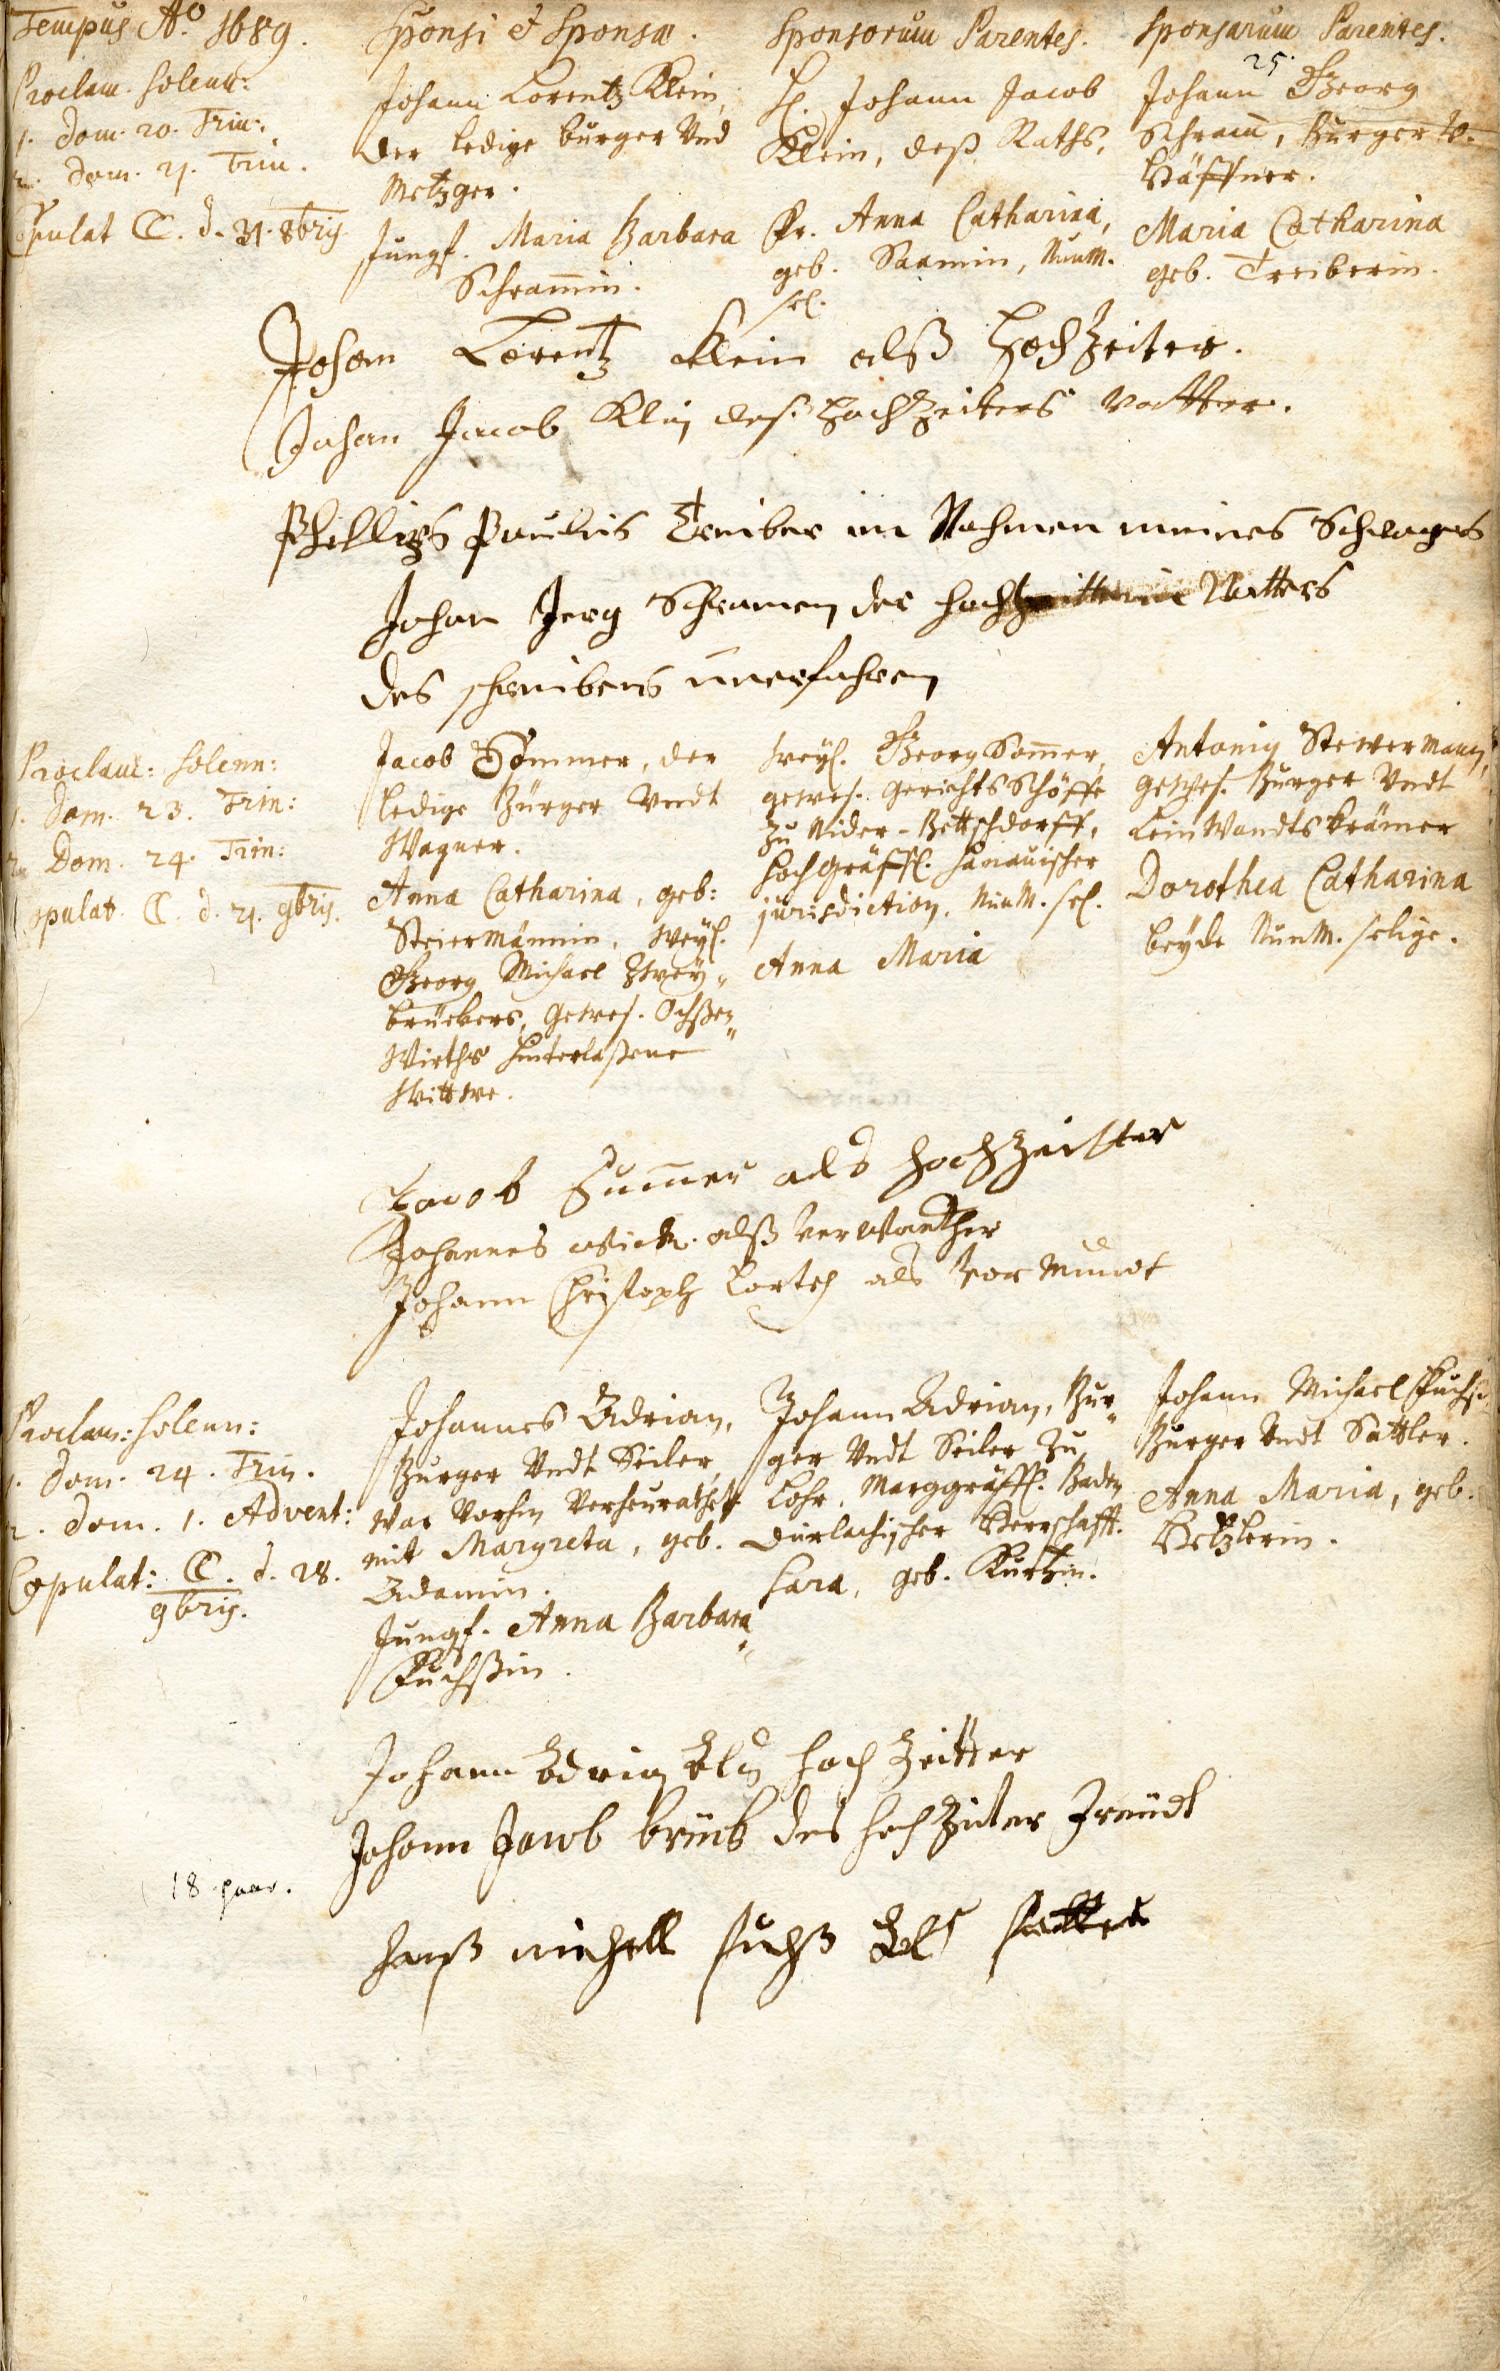 Tempus Aº 1689.
Sponsi & Sponsæ.
Sponsorum Parentes.
Sponsarum Parentes.
25.
Proclam. solenn:
1. Dom. 20. Trin:
2. Dom. 21. Trin.
Copulat C. d. 31. 8bris
Johann Lorentz Klein,
der ledige burger Vnd
Metzger.
Jungf. Maria Barbara
Schram̅in.
H. Johann Jacob
Klein, deß Raths,
Fr. Anna Catharina,
geb. Saamin, NunM.
sel.
Johann Georg
Schram̅, Burger V.
Häffner.
Maria Catharina
geb. Treiberin.
Johan Lorentz Klein alß Hochzeiter.
Johan Jacob Klein deß Hochzeiters Vatter.
Phillips Paulus Treiber im Nahmen meines Schwagers
Johan Jerg Schramen der Hochzeitterin Vatters
des schreibens unerfahren
Proclam: solenn:
1. Dom. 23. Trin:
2. Dom. 24. Trin:
Copulat. C. d. 21. 9bris.
Jacob Sommer, der
ledige Bürger Vndt
Wagner.
Anna Catharina, geb:
Steiermännin, Weyl.
Georg Michael Zwey-
brückers, Gewes. Ochßen
Wirths hinterlaßene
Wittwe.
Weyl. Georg Som̅er,
gewes. Gerichts Schöffe
Zu Nider-Bettschdorff,
Hochgräffl. Hanauischer
jurisdiction, NunM. sel.
Anna Maria
Antoniy Stewermann,
Gewes. Burger Vndt
Leinwandtskrämer
Dorothea Catharina
beyde NunM. selige.
Jacob Summer als Hochzeitter
Johannes Wick alß Verwanther
Johann Christoph Cortes als Vormundt
Proclam: solenn:
1. Dom. 24. Trin.
2. Dom. 1. Advent:
Copulat: C. d. 28.
9bris.
Johannes Adrian,
Burger Vndt Seiler,
War Vorhin Verheurathet
mit Margreta, geb.
Adamin.
Jungf. Anna Barbara
Fuchßin.
Johann Adrian, Bur-
ger Vndt Seiler Zu
Lohr, Marggräffl. Baden
Durlachischer Herrschafft.
Sara, geb. Kurtzin.
Johann Michael Fuchs,
Burger Vndt Sattler.
Anna Maria, geb.
Betzlerin.
Johann Adrian Als Hoch Zeitter
Johann Jacob des Hoch Zeiter Freündt
18 paar.
Hanß michell fuchß Als fatter